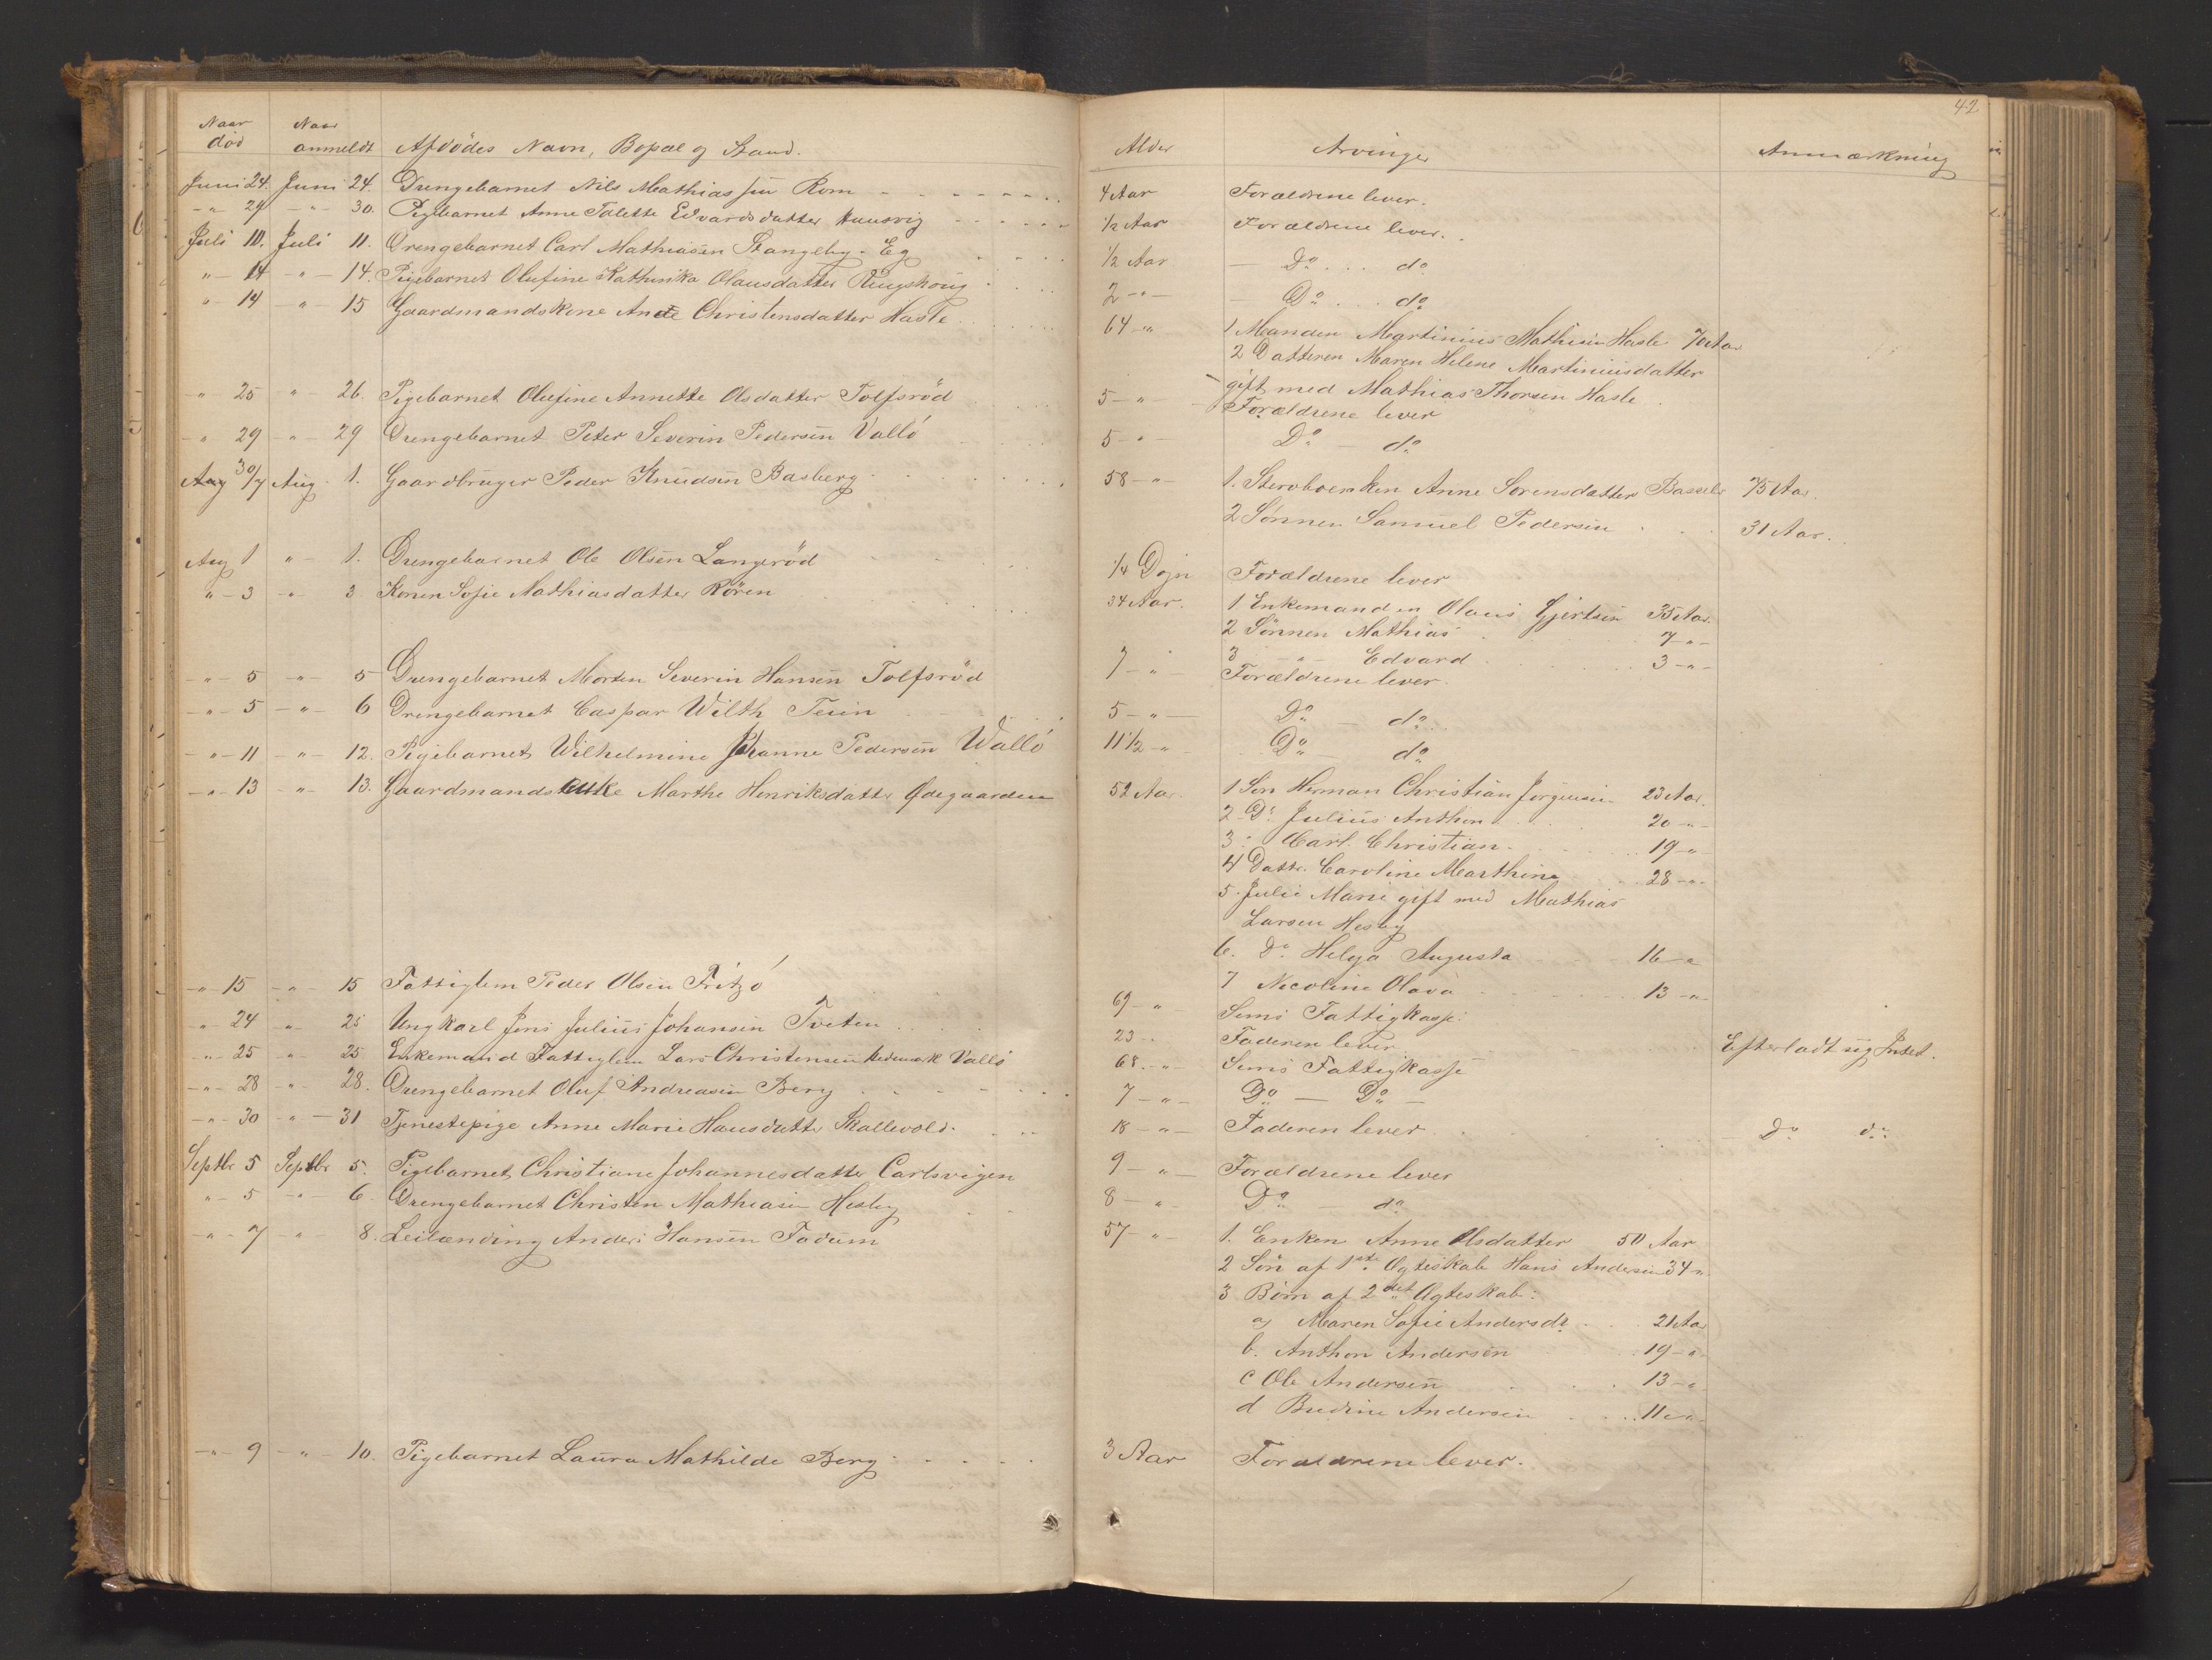 42
Naar død
Naar anmeldt
Afdødes Navn, Bopæl og Stand.
Alder
Arvinger
Anmærkning
Juni 24. Juni 24. Drengebarnet Nils Mathiassen Rom 4 Aar Forældrene lever.
-"- 29 -"- 30. Pigebarnet Anne Talette Edvardsdatter Husvig 1/2 Aar Forældrene lever.
Juli 10. Juli 11. Drengebarnet Carl Mathiasen Stangeby-Eg 1/2 Aar Do do
"- 14 -"- 14. Pigebarnet Olufine Kathinka Olausdatter Ringshoug 2 -"- Do do
"- 14 -"- 15 Gaardmandskone Anne Christensdatter Hasle 64 -"- 1 Manden Martinius Mathisen Hasle 70 Aar
2 Datteren Maren Helene Martiniusdatter
gift med Mathias Thorsen Hasle
-"- 25 "- 26. Pigebarnet Olufine Annette Olsdatter Tolfsrød 5 -"- Forældrene lever
-"- 29 -"- 29 Drengebarnet Peter Severin Pedersen Vallø 5 -"- Do do
Aug 30/7 Aug. 1. Gaardbruger Peder Knudsen Basberg 58 -"- 1. Stervboenken Anne Sorensdatter 75 Aar.
2 Sønnen Samuel Pedersen 31 Aar.
Aug 1 "- 1. Drengebarnet Ole Olsen Langerød 1/4 Døgn Forældrene lever
"- 3 -"- 3 Konen Sofie Mathiasdatter Røren 34 Aar. 1 Enkemanden Olaus Gjertsen 35 Aar.
2 Sønnen Mathias 7 -"-
3 -"- Edvard 3 -"-
-"- 5 -"- 5 Drengebarnet Morten Severin Hansen Tolfsrød 7 -"- Forældrene lever.
-"- 5 -"- 6 Drengebarnet Caspar Wilth Teien 5 -"- Do do
-"- 11 -"- 12. Pigebarnet Wilhelmine Johanne Pedersen Wallø 11 1/2 -"- Do do
-"- 13 "- 13. Gaardmandsenke Marthe Henriksdatter Ødegaarden 52 Aar. 1 Søn Herman Christian Jørgensen 23 Aar.
2 Do Julius Anthon 20 -"-
3 " Carl Christian 19 -"-
4 Dattr. Caroline Marthine 28 -"-
5. Julie Marie gift med Mathias
Larsen Hesby
6. Do Helga Augusta 16 -"
7 Nicoline Olava 13 -"-
-"- 15 -"- 15 Fattiglem Peder Olsen Fritzø 69 -"- Sems Fattigkasse.
"- 24 -"- 25 Ungkarl Jens Julius Johansen Tveten 23 -"- Faderen lever Efterladt sig Intet.
-"- 25 -"- 25. Enkemand Fattiglem Lars Christensen Hedemark Vallø 68. -"- Sems Fattigkasse
-"- 28 -"- 28. Drengebarnet Oluf Andreasen Berg 7 -"- Do Do
-"- 30 -"- 31 Tjenestepige Anne Marie Hansdatter Skallevold 18 -"- Faderen lever Do do
Septbr 5 Septbr 5. Pigebarnet Christiane Johannesdatter Carlsvigen 9 -"- Forældrene lever
"- 5 -"- 6. Drengebarnet Christen Mathiasen Hesby 8 -"- Do do
-"- 7 -"- 8. Leilænding Anders Hansen Fadum 57 -"- 1. Enken Anne Olsdatter 50 Aar
2 Søn af 1ste Ægteskab Hans Andersen 34 "
3 Børn af 2det Ægteskab:
a, Maren Sofie Andersdr 21 Aar
b. Anthon Andersen 19 -"-
c Ole Andersen 13 -"
d Andersen 11 -"-
-"- 9 -"- 10. Pigebarnet Laura Mathilde Berg 3 Aar Forældrene lever.